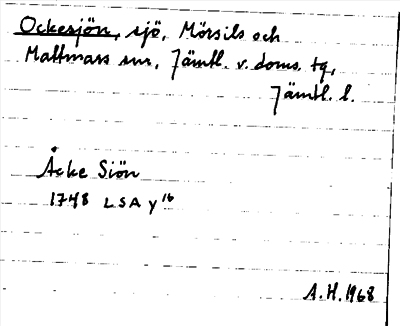 Ockesjön, sjö, Mörsils och
Mattmars snr, Jämtl. v. doms. tg,
Jämtl. l.
Åcke Siön
1748 LSA y 16
A.H. 1968